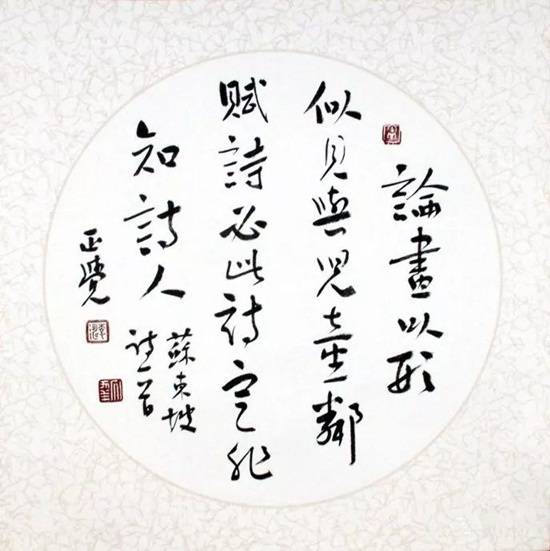 論畫以形
似見與兒童鄰
賦詩必此詩定非
知詩人
蘇東坡
詩一首
正覺